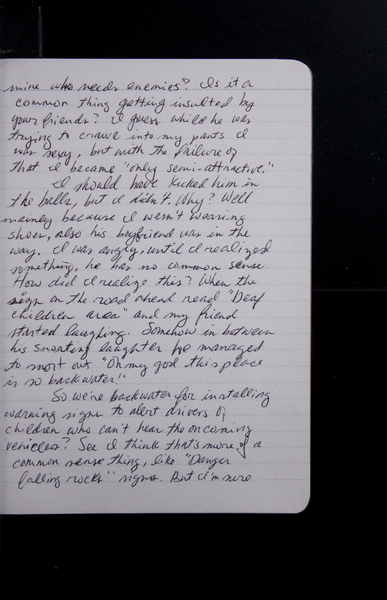 mine who needs enemies? Is it a
common thing getting insulted by
your friends? I guess while he was
trying to crawl into my pants I
was sexy, but with the failure of
that I became "only semi-attractive."
I should have kicked him in
the balls, but I didn't. Why? Well
mainly because I wasn't wearing
shoes, also his boyfriend was in the
way. I was angry, until I realized
something, he has no common sense.
How did I realize this? When the
sign on the road ahead read "Deaf
children area" and my friend
started laughing. Somehow in between
his snorting laughter he managed
to snort out "Oh my god this place
is so backwater!"
So we're backwater for installing
warning signs to alert drivers of
children who can't hear the oncoming
vehicles? See I think that's more of a
common sense thing, like "Danger
falling rocks" signs. But I'm sure